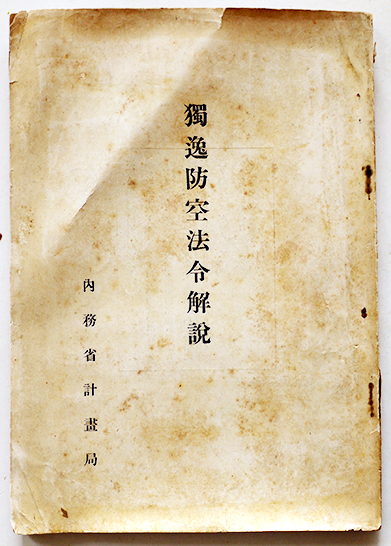 獨逸防空法令解說
內務省計畫局